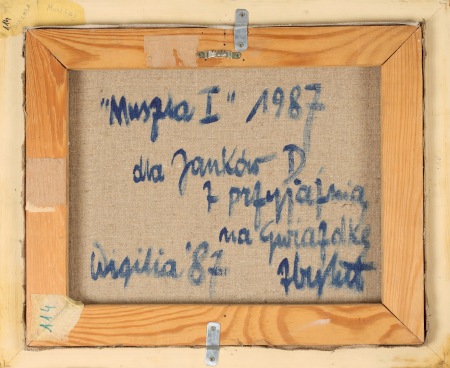 "Muszla I" 1987
dla Janków D.
z przyjaźnią
na Gwiazdkę
Wigilia '87 Zbylut
114
114